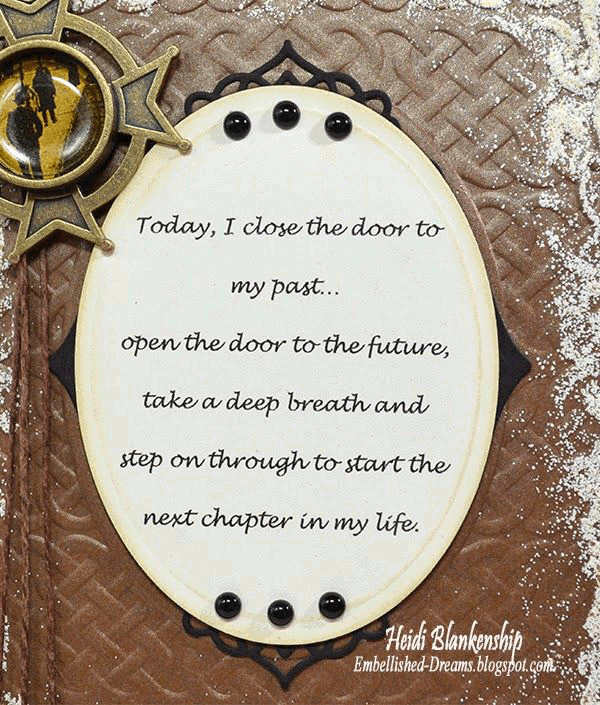 Today, I close the door to
my past...
open the door to the future,
take a deep breath and
step on through to start the
next chapter in my life.
Heidi Blankenship
Embellished-Dreams.blogspot.com